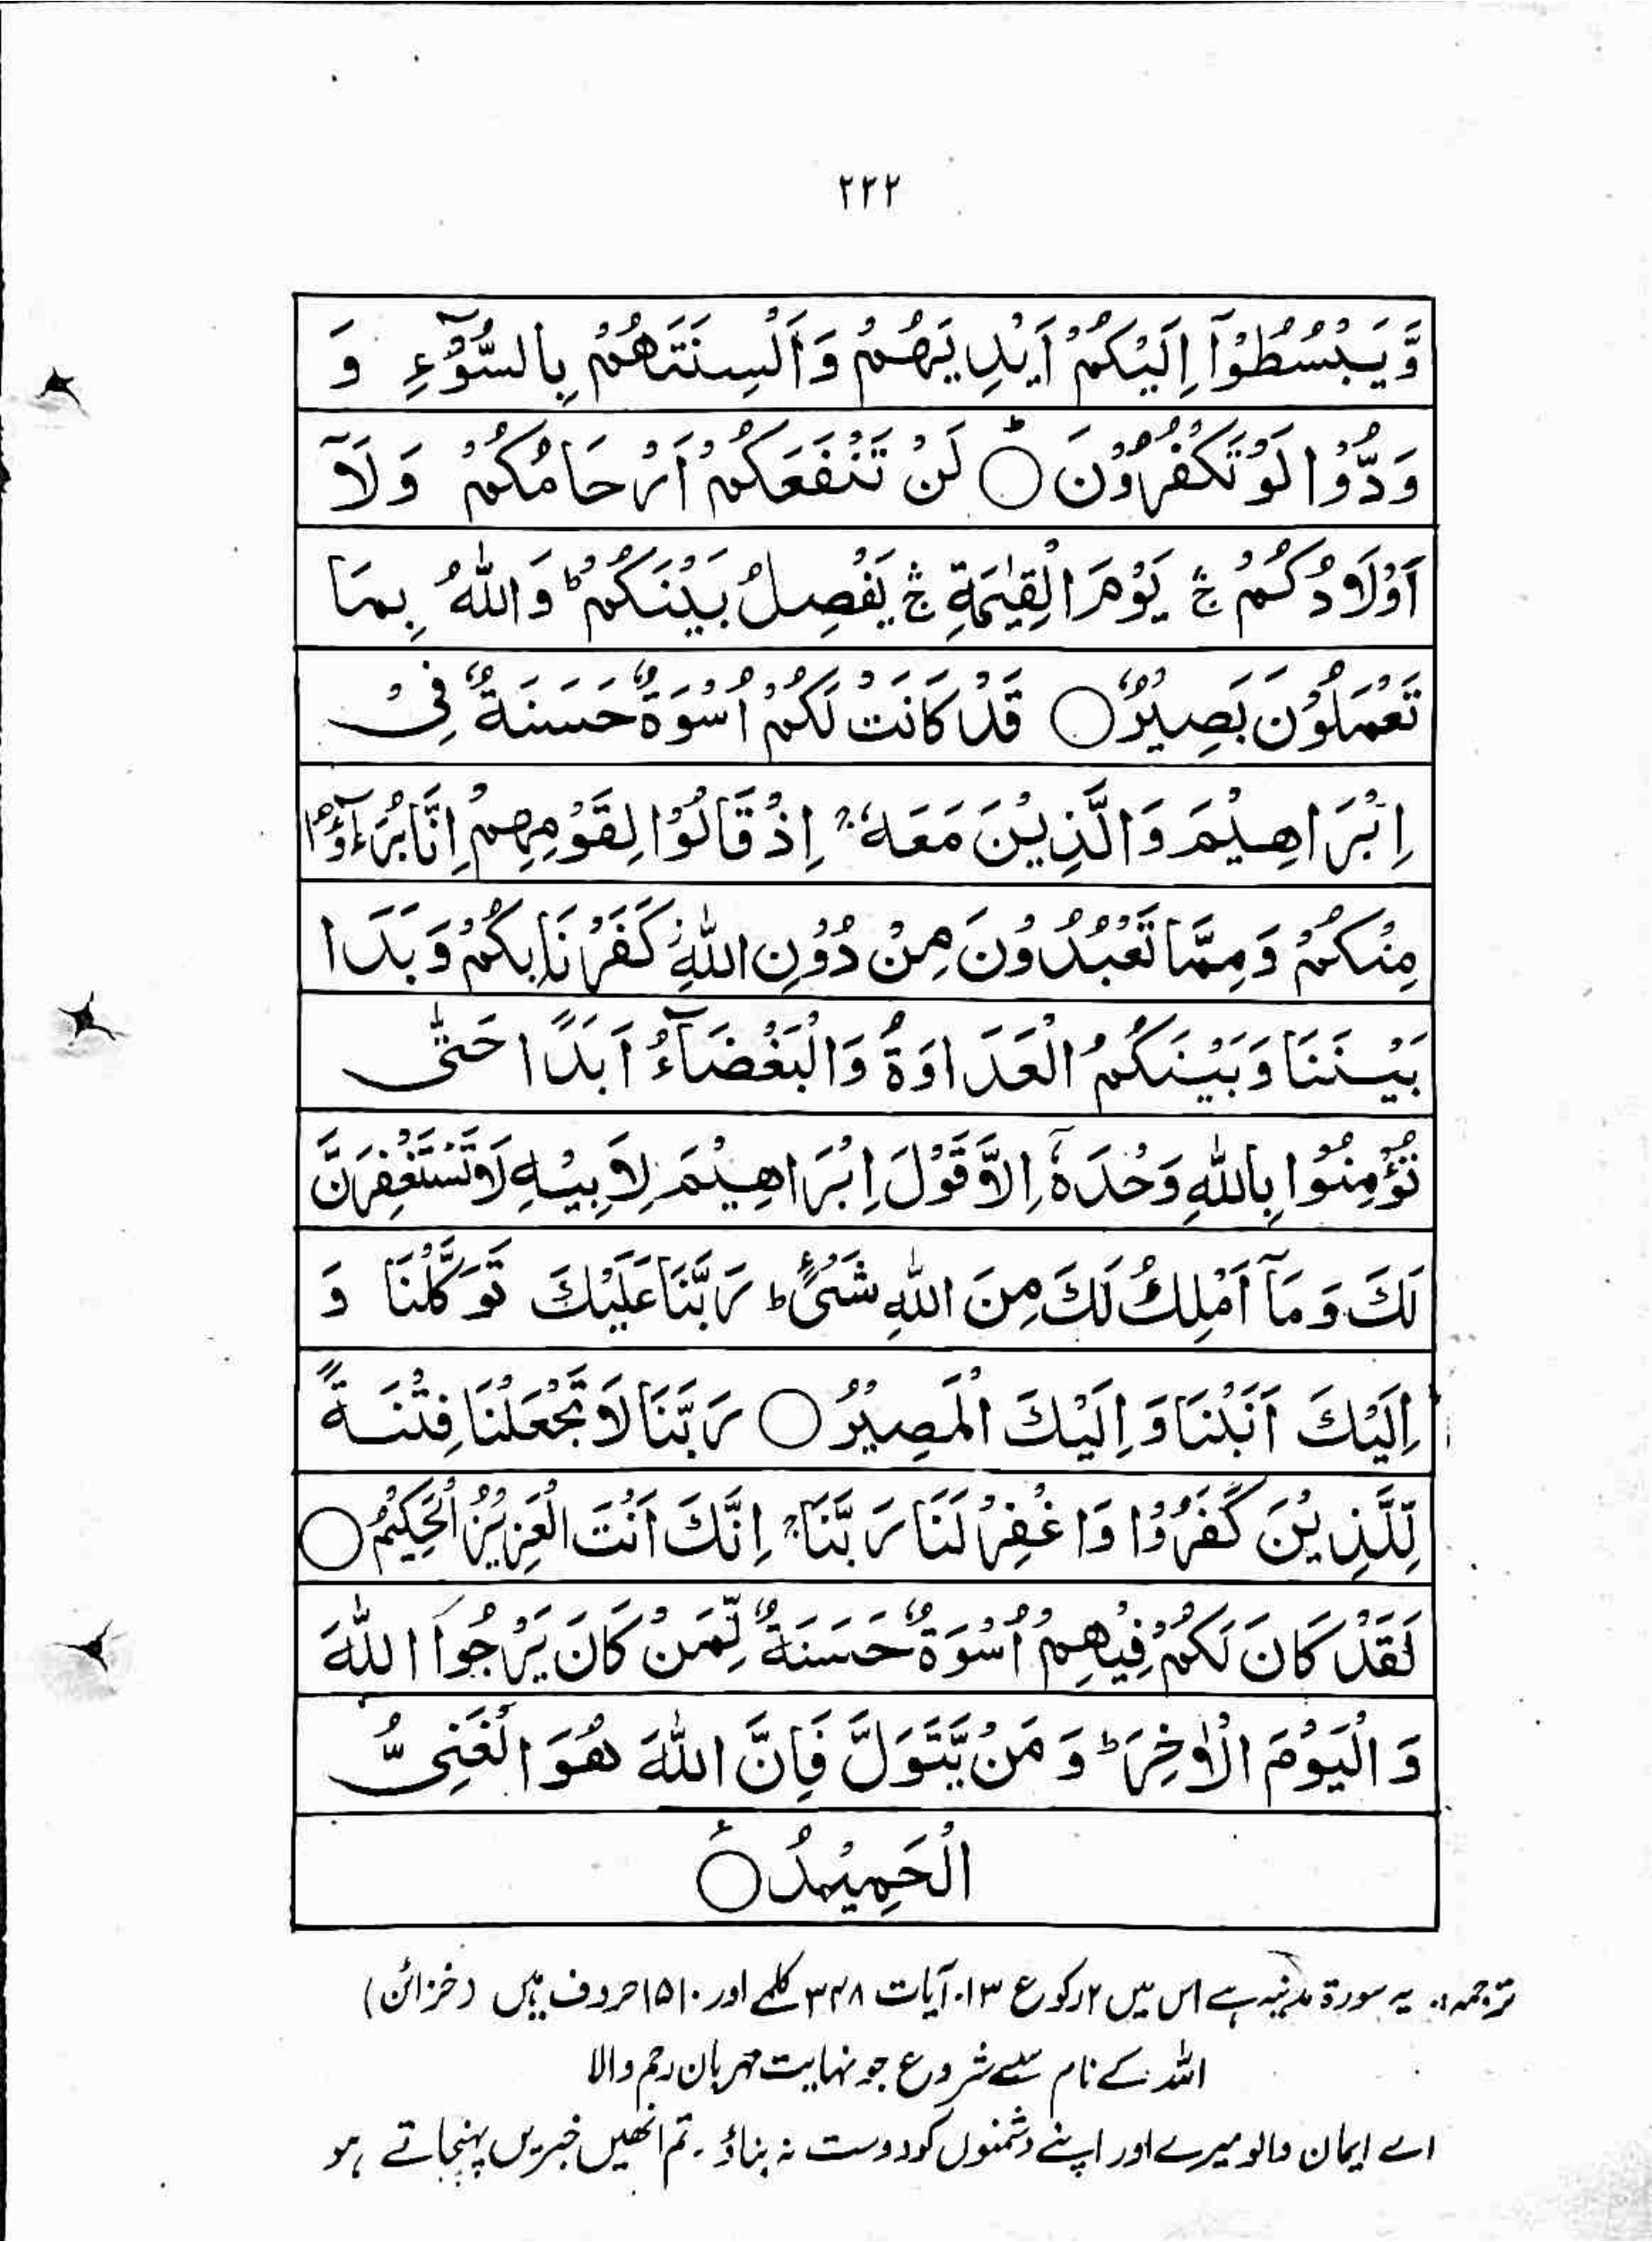 ۲۲۲
وَّ يَبْسُطُوْۤا اِلَيْكُمْ اَيْدِيَهُمْ وَاَلْسِنَتَهُمْ بِالسُّوْٓءِ وَ
وَدُّوْا لَوْ تَكْفُرُوْنَ ؕ○ لَنْ تَنْفَعَكُمْ اَرْحَامُكُمْ وَلَاۤ
اَوْلَادُكُمْ ۚۛ يَوْمَ الْقِيٰمَةِ ۚۛ يَفْصِلُ بَيْنَكُمْ ؕ وَاللّٰهُ بِمَا
تَعْمَلُوْنَ بَصِيْرٌ○ قَدْ كَانَتْ لَكُمْ اُسْوَةٌ حَسَنَةٌ فِیْ
اِبْرَاهِيْمَ وَالَّذِيْنَ مَعَهٗ ۚ اِذْ قَالُوْا لِقَوْمِهِمْ اِنَّا بُرَءٰٓؤُا
مِنْكُمْ وَمِمَّا تَعْبُدُوْنَ مِنْ دُوْنِ اللّٰهِ ۫ كَفَرْنَا بِكُمْ وَ بَدَا
بَيْنَنَا وَبَيْنَكُمُ الْعَدَاوَةُ وَالْبَغْضَآءُ اَبَدًا حَتّٰى
تُؤْمِنُوْا بِاللّٰهِ وَحْدَهٗۤ اِلَّا قَوْلَ اِبْرَاهِيْمَ لِاَبِيْهِ لَاَ تَسْتَغْفِرَنَّ
لَكَ وَ مَاۤ اَمْلِكُ لَكَ مِنَ اللّٰهِ شَیْءٍ ؕ رَبَّنَا عَلَيْكَ تَوَكَّلْنَا وَ
اِلَيْكَ اَنَبْنَا وَ اِلَيْكَ الْمَصِيْرُ○ رَبَّنَا لَا تَجْعَلْنَا فِتْنَةً
لِّلَّذِيْنَ كَفَرُوْا وَا غْفِرْ لَنَا رَبَّنَا ۚ اِنَّكَ اَنْتَ الْعَزِيْزُ الْحَكِيْمُ○
لَقَدْ كَانَ لَكُمْ فِيْهِمْ اُسْوَةٌ حَسَنَةٌ لِّمَنْ كَانَ يَرْجُوا اللّٰهَ
وَ الْيَوْمَ الْاٰخِرَ ؕ وَ مَنْ يَّتَوَلَّ فَاِنَّ اللّٰهَ هُوَ الْغَنِیُّ
الْحَمِيْدُ○ ۧ
ترجمہ:۔ یہ سورۃ مدنیہ ہے اس میں ۲ رکوع ۱۳۔ آیات ۳۴۸ کلمے اور ۱۵۱۰ حروف ہیں (خزائن)
اللہ کے نام سے شروع جو نہایت مہربان رحم والا
اے ایمان والو میرے اور اپنے دشمنوں کو دوست نہ بناؤ۔ تم انھیں خبریں پہنچاتے ہو